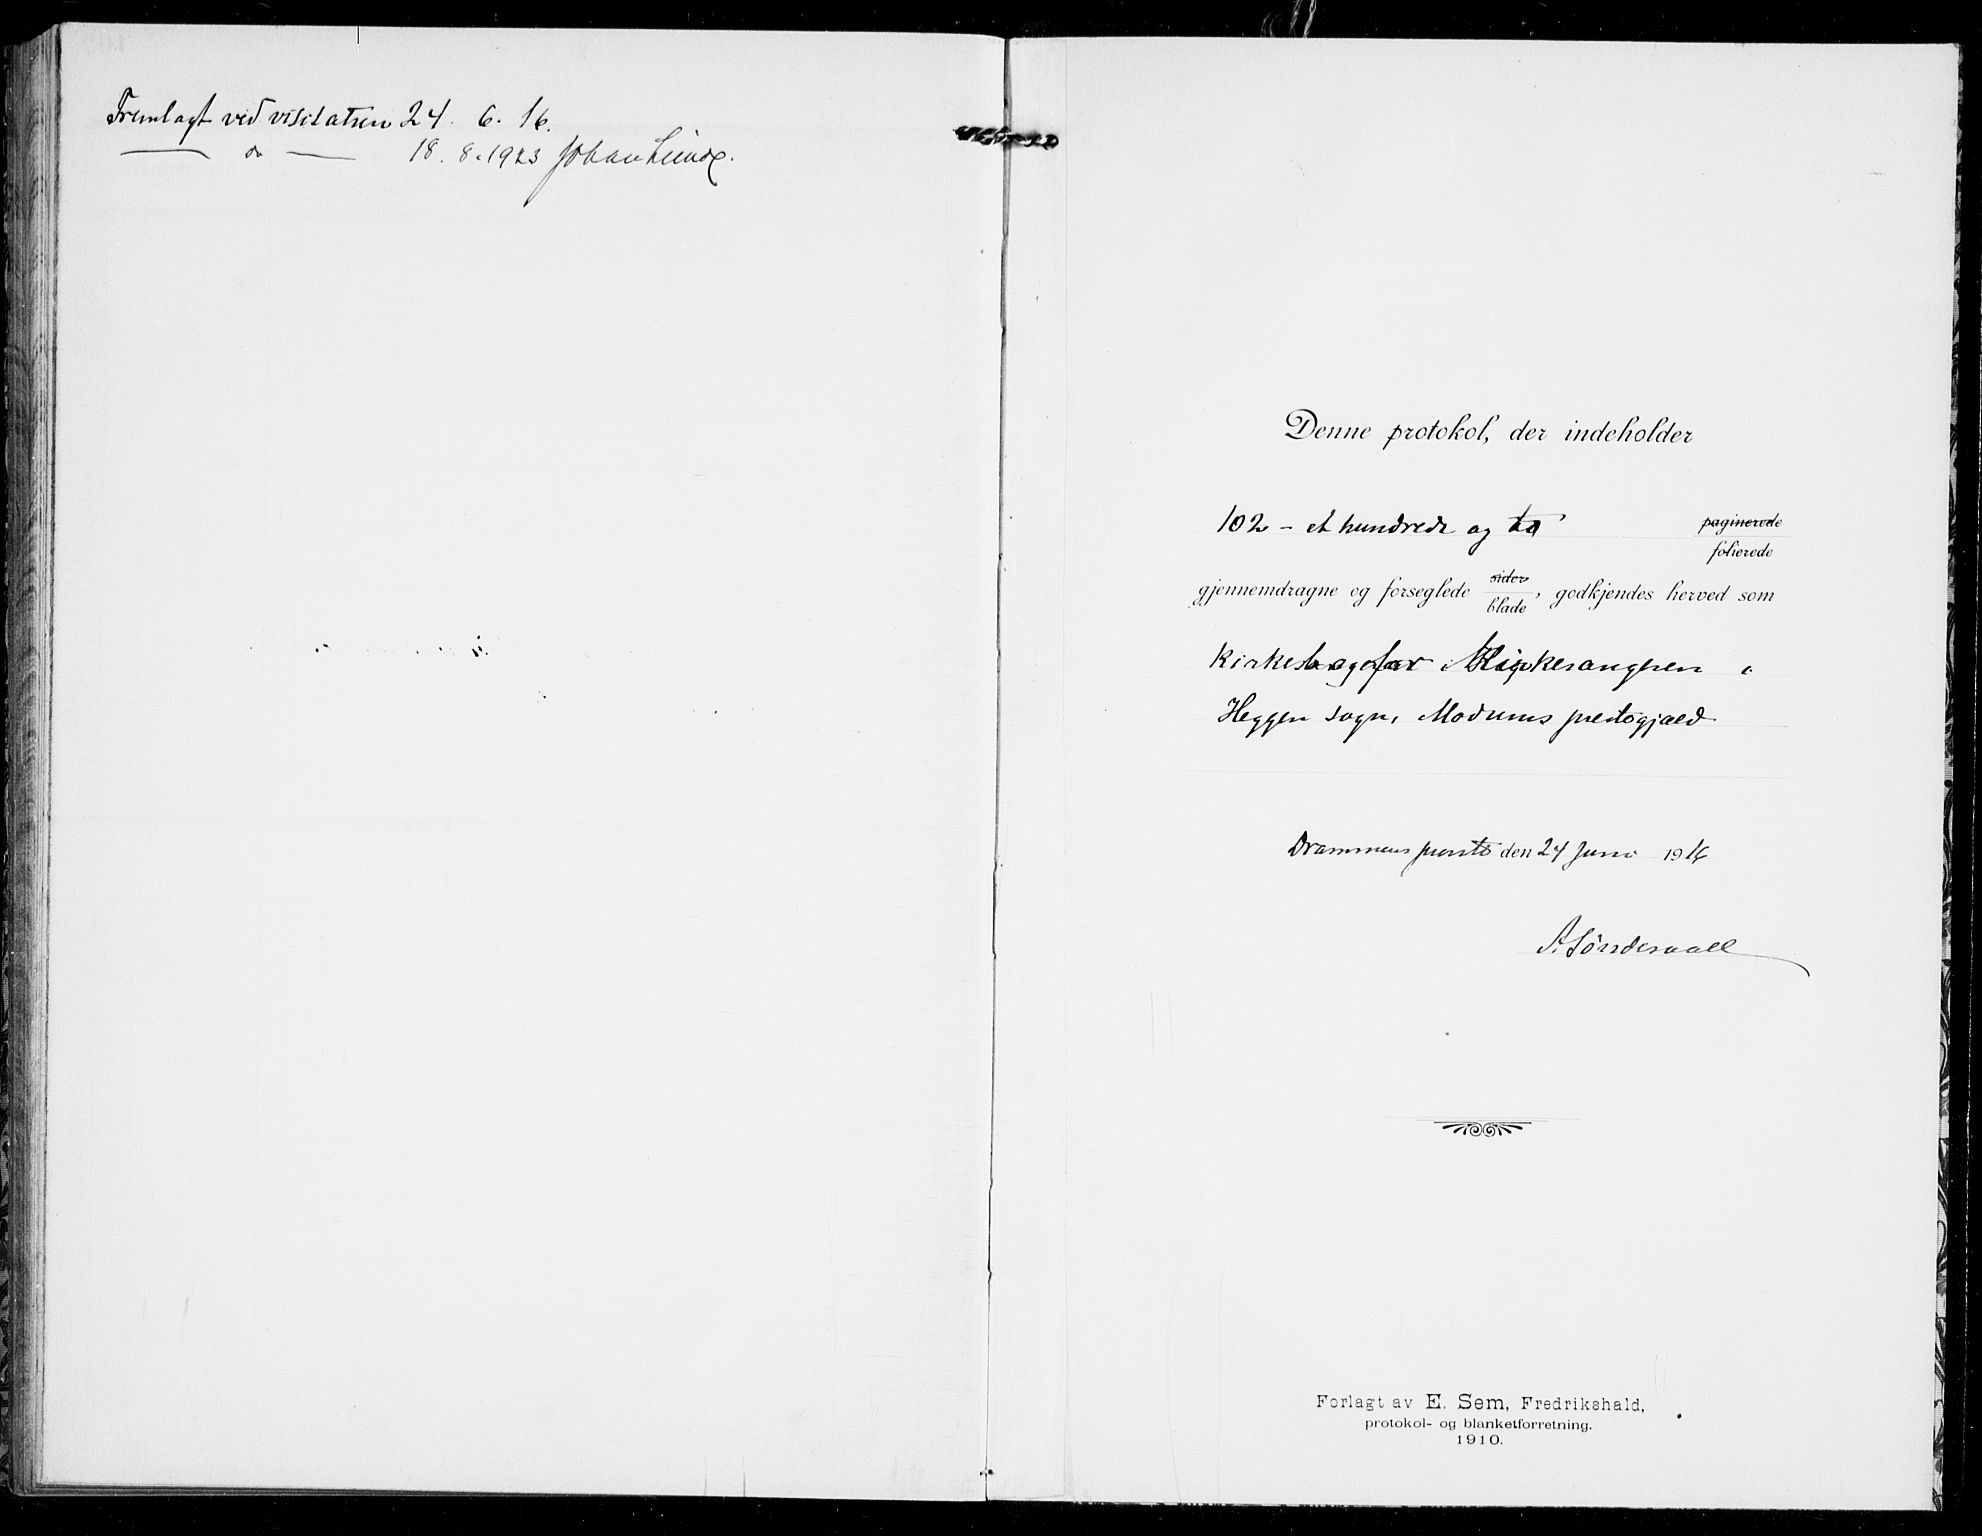 Fremlagt ved visitatsen 24. 6. 16.
— do — 18. 8. 1923 Johan Lunde.
Denne protokol, der indeholder
102 - et hundrede og to paginerede
folierede
gjennemdragne og forseglede sider
blade, godkjendes herved som
kirkebog for Kirkesangeren i
Heggen sogn, Modums prestegjæld
Drammens den 24 Juni 1916
Forlagt av E. Sem, Fredrikshald,
protokol- og blanketforretning.
1910.